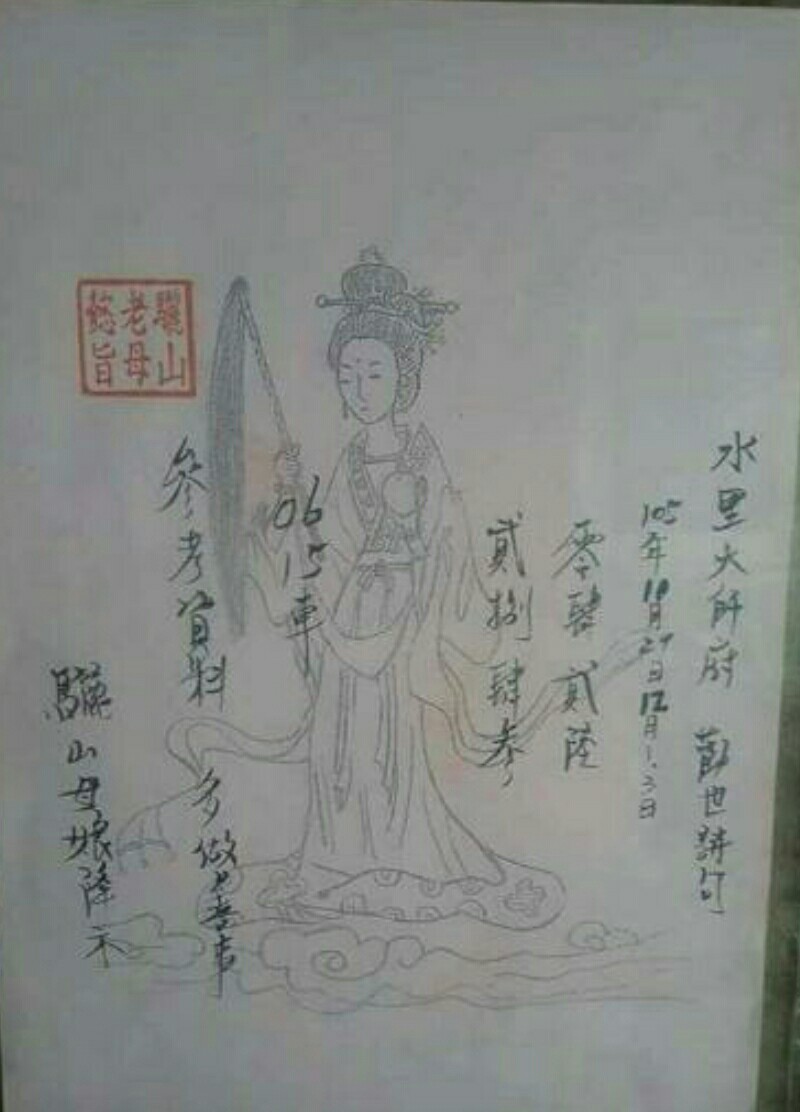 水里大師府 勸世詩句
105年10月29日12月1.3日
零肆 貳陸
貳捌 肆參
06
15車
參考資料 多做善事
驪山母娘降示
驪山老母懿旨